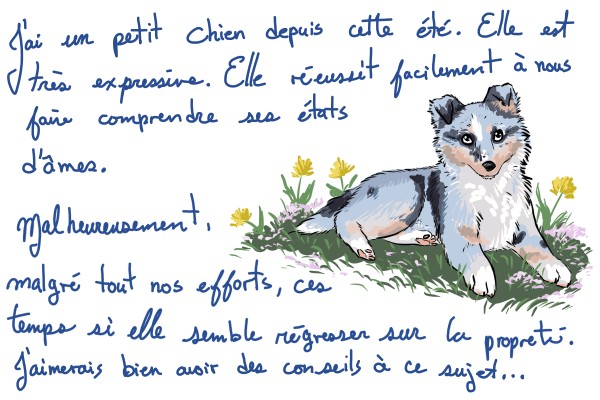 J'ai un petit chien depuis cette été. Elle est
très expressive. Elle réeussit facilement à nous
faire comprendre ses états
d'âmes.
Malheureusement,
malgré tout nos efforts, ces
temps si elle semble régresser sur la propreté.
J'aimerais bien avoir des conseils à ce sujet...